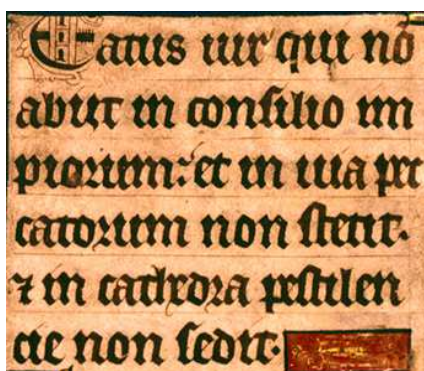 Eatus uir qui nõ
abiit in consilio im
piorum: et in uia pec
catorum non stetit.
⁊ in cathedra pestilen
cie non sedit.